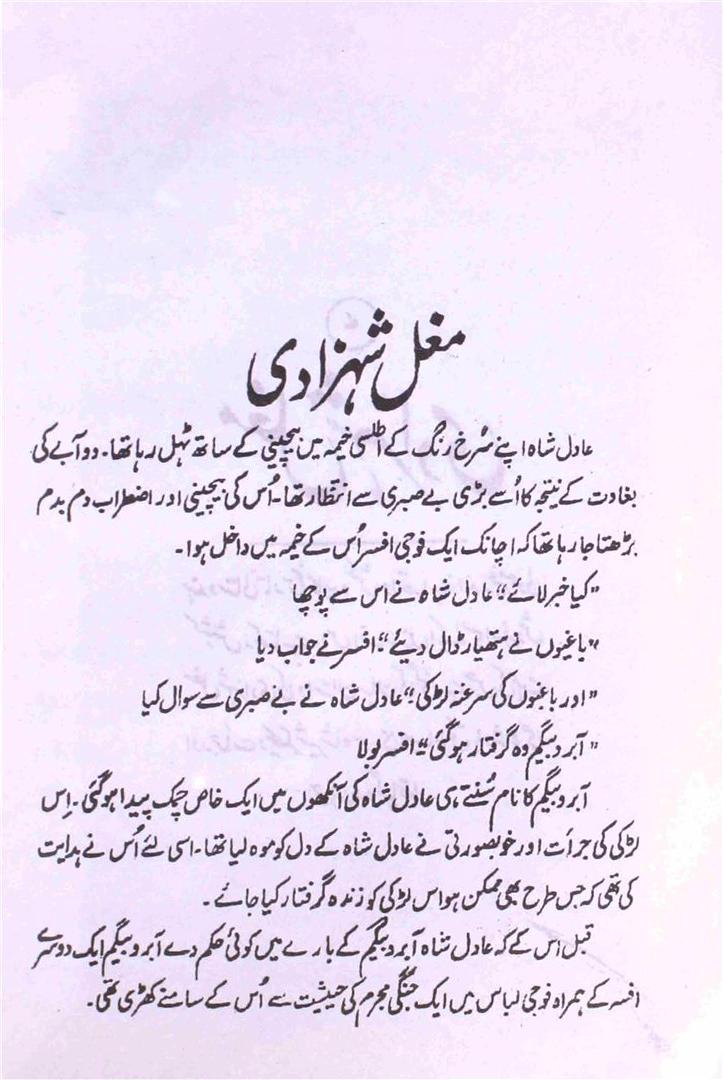 مغل شہزادی
عادل شاہ اپنے سُرخ رنگ کے اطلسی خیمہ میں بیچینی کے ساتھ ٹہل رہا تھا۔ دو آبے کی
بغاوت کے نتیجہ کا اُسے بڑی بے صبری سے انتظار تھا۔ اُس کی بیچینی اور اضطراب دم بدم
بڑھتا جا رہا تھا کہ اچانک ایک فوجی افسر اُس کے خیمہ میں داخل ہوا۔
”کیا خبر لائے“ عادل شاہ نے اس سے پوچھا
”باغیوں نے ہتھیار ڈال دیئے“۔ افسر نے جواب دیا
”اور باغیوں کی سرغنہ لڑکی“ عادل شاہ نے بے صبری سے سوال کیا
”آبرو بیگم وہ گرفتار ہو گئی“ افسر بولا
آبرو بیگم کا نام سُنتے ہی عادل شاہ کی آنکھوں میں ایک خاص چمک پیدا ہو گئی۔ اِس
لڑکی کی جرأت اور خوبصورتی نے عادل شاہ کے دل کو موہ لیا تھا۔ اسی لئے اُس نے ہدایت
کی تھی کہ جس طرح بھی ممکن ہو اس لڑکی کو زندہ گرفتار کیا جائے۔
قبل اس کے کہ عادل شاہ آبرو بیگم کے بارے میں کوئی حکم دے آبرو بیگم ایک دوسرے
افسر کے ہمراہ فوجی لباس میں ایک جنگی مجرم کی حیثیت سے اُس کے سامنے کھڑی تھی۔